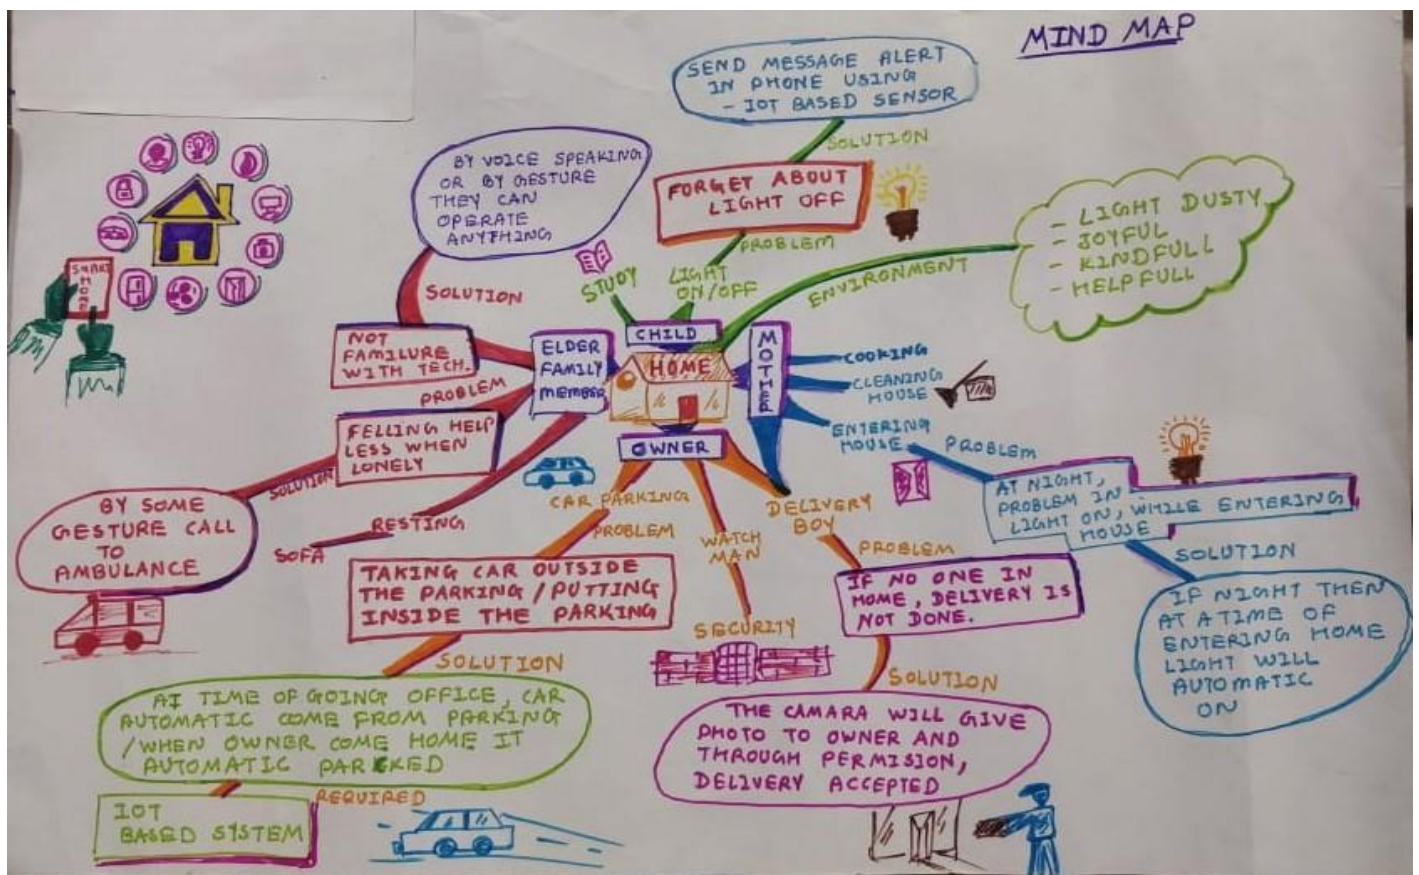 MIND MAP
SEND MESSAGE ALERT
IN PHONE USING
- IOT BASED SENSOR
SOLUTION
FORGET ABOUT
LIGHT OFF
PROBLEM
LIGHT
ON/OFF
STUDY
CHILD
BY VOICE SPEAKING
OR BY GESTURE
THEY CAN
OPERATE
ANYTHING
SOLUTION
NOT
FAMILURE
WITH TECH.
PROBLEM
ELDER
FAMILY
MEMBER
FELLING HELP
LESS WHEN
LONELY
SOLUTION
BY SOME
GESTURE CALL
TO
AMBULANCE
RESTING
SOFA
SMART
HOME
HOME
ENVIRONMENT
- LIGHT DUSTY
- JOYFUL
- KINDFULL
- HELPFULL
MOTHER
COOKING
CLEANING
HOUSE
ENTERING
HOUSE
PROBLEM
AT NIGHT,
PROBLEM IN
LIGHT ON, WHILE ENTERING
HOUSE
SOLUTION
IF NIGHT THEN
AT A TIME OF
ENTERING HOME
LIGHT WILL
AUTOMATIC
ON
OWNER
CAR PARKING
PROBLEM
TAKING CAR OUTSIDE
THE PARKING / PUTTING
INSIDE THE PARKING
SOLUTION
AT TIME OF GOING OFFICE, CAR
AUTOMATIC COME FROM PARKING
/ WHEN OWNER COME HOME IT
AUTOMATIC PARKED
REQUIRED
IOT
BASED SYSTEM
WATCH
MAN
SECURITY
DELIVERY
BOY
PROBLEM
IF NO ONE IN
HOME, DELIVERY IS
NOT DONE.
SOLUTION
THE CAMARA WILL GIVE
PHOTO TO OWNER AND
THROUGH PERMISION,
DELIVERY ACCEPTED